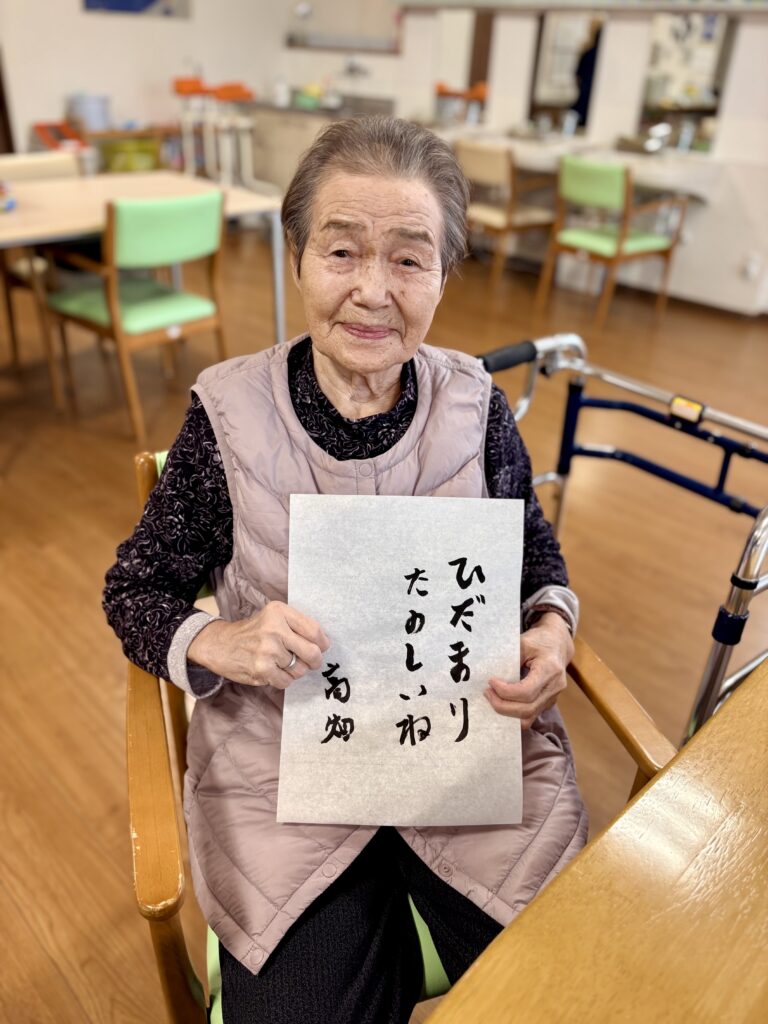 ひだまり
たのしいね
高畑